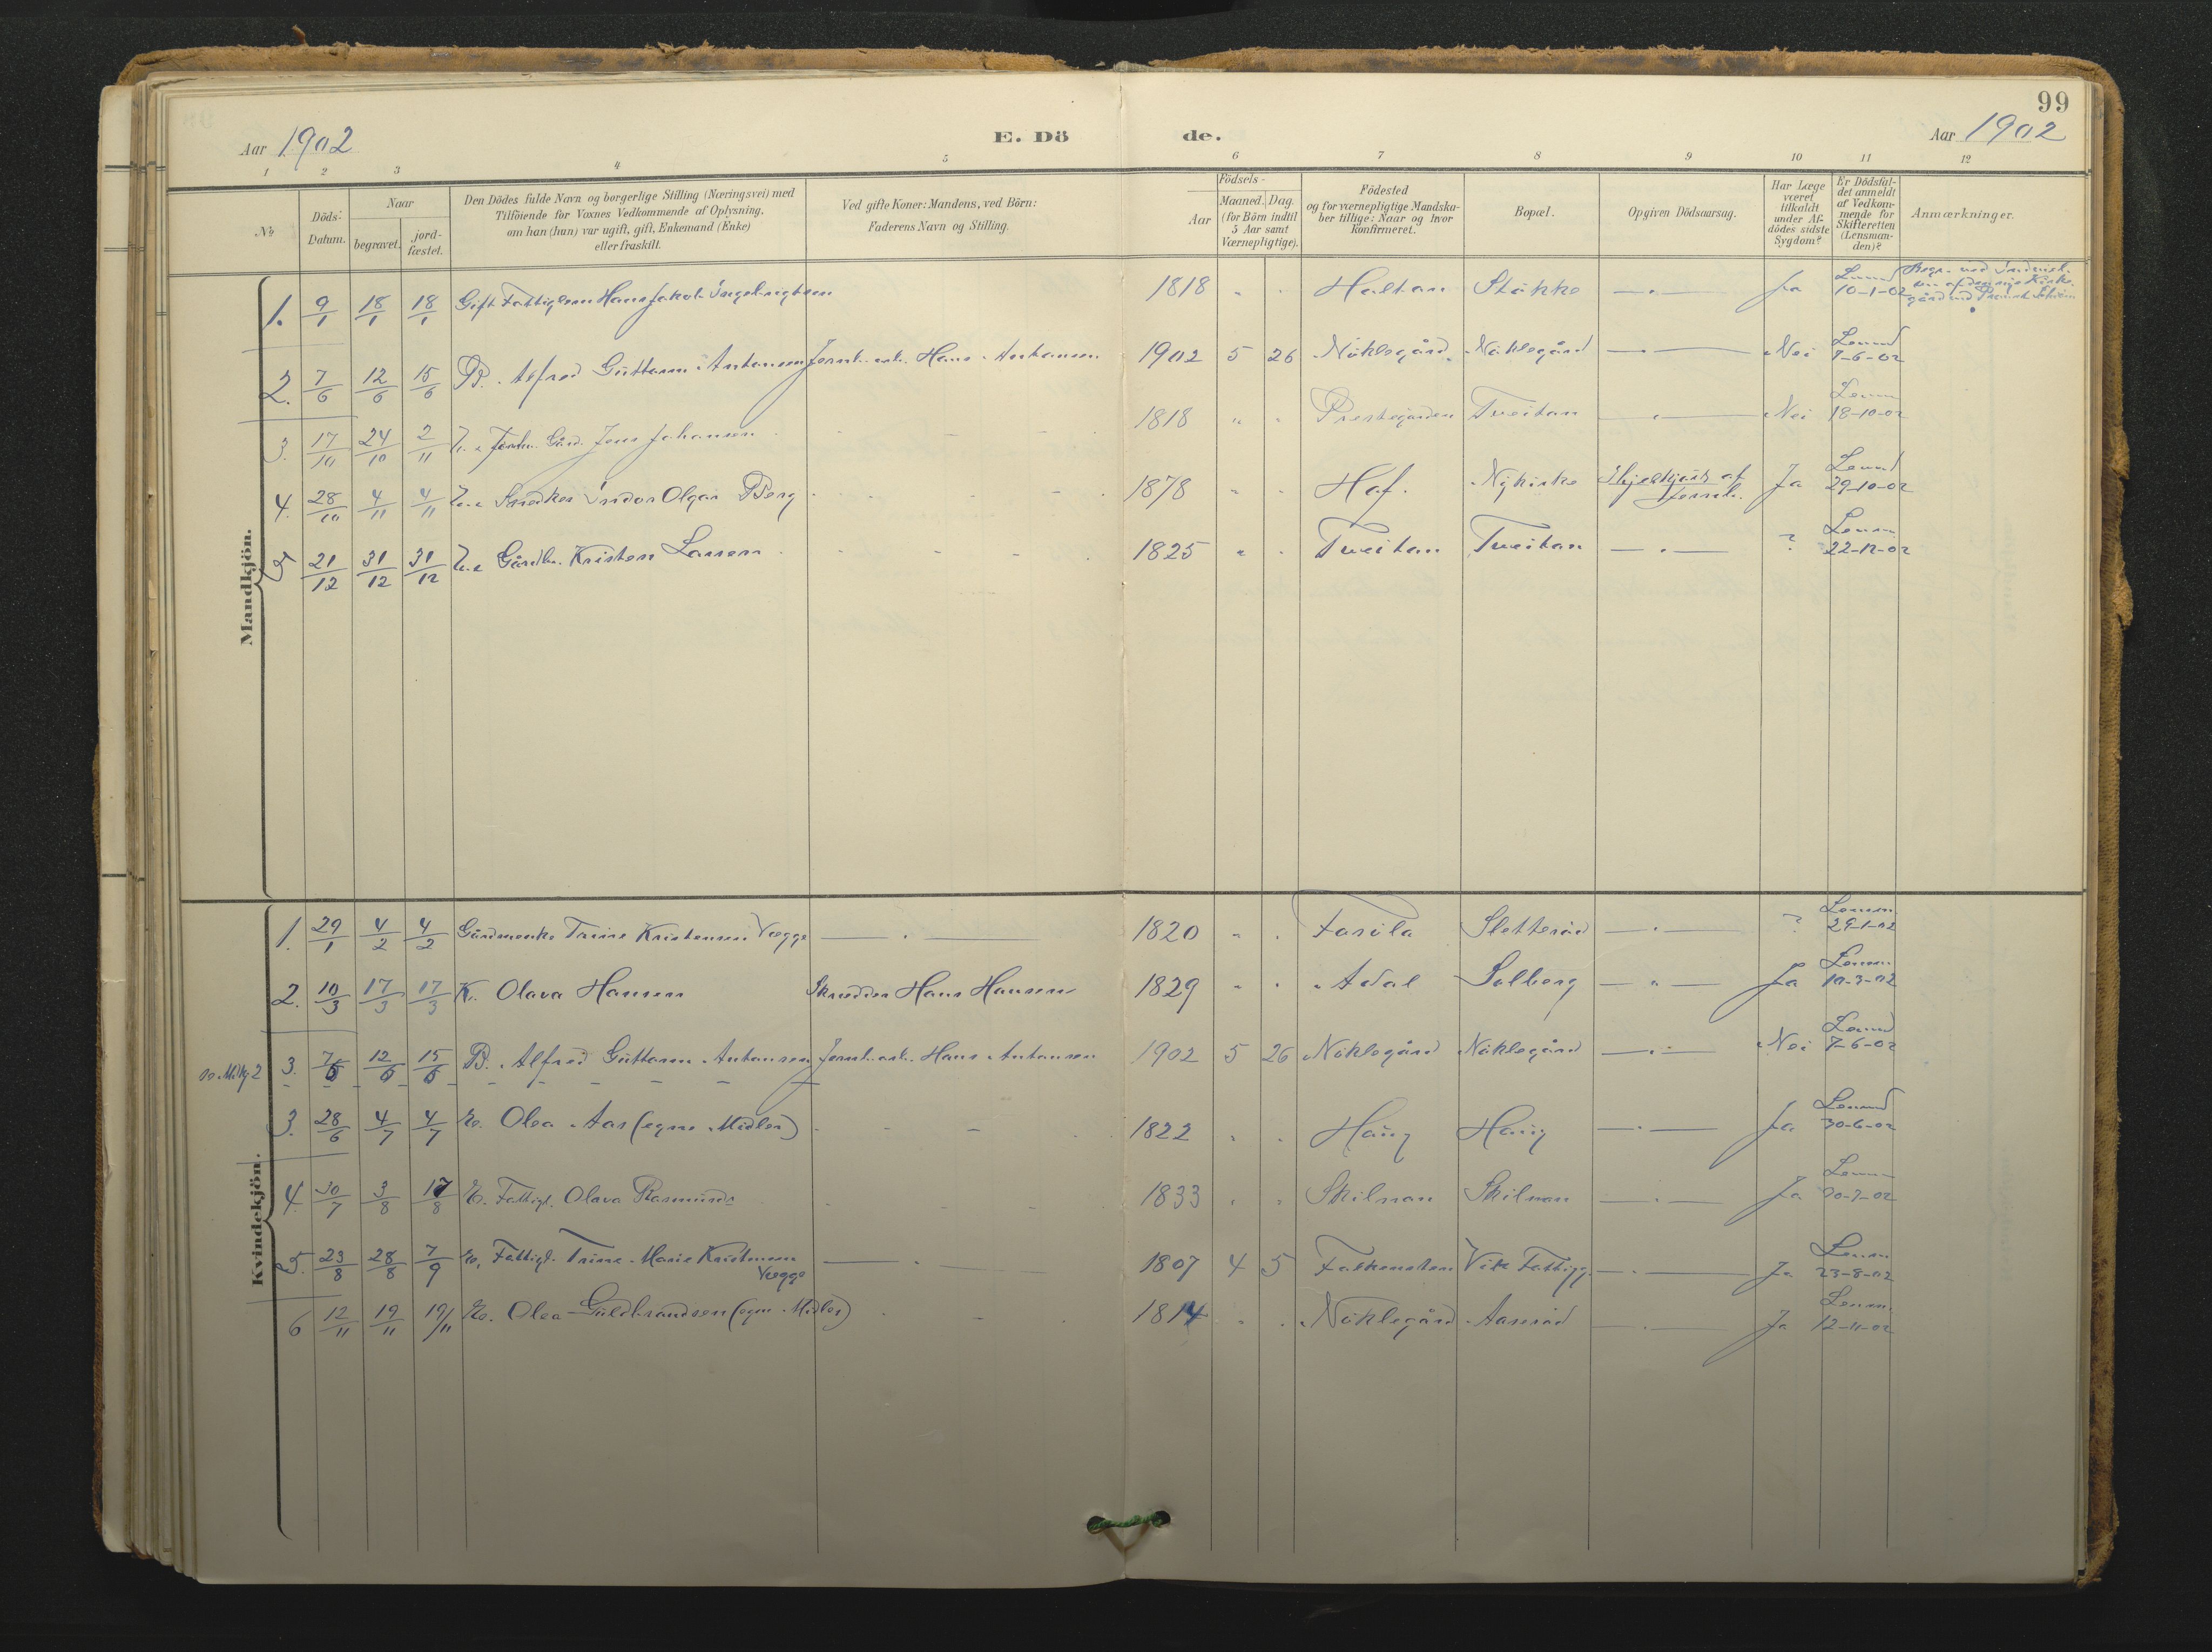 99
Aar 1902
E. Dö de.
Aar 1902
1 2 3 4 5 6 7 8 9 10 11 12
No
Döds-Datum.
Naar
begravet.
jord-fæstet.
Den Dödes fulde Navn og borgerlige Stilling (Næringsvei) med
Tilföiende for Voxnes Vedkommende af Oplysning,
om han (hun) var ugift, gift, Enkemand (Enke)
eller fraskilt.
Ved gifte Koner: Mandens, ved Börn:
Faderens Navn og Stilling.
Födsels-
Aar
Maaned. Dag.
(for Börn indtil
5 Aar samt
Værnepligtige).
Födested
og for værnepligtige Mandska-
ber tillige: Naar og hvor
Konfirmeret.
Bopæl.
Opgiven Dödsaarsag.
Har Læge
været
tilkaldt
under Af-
dödes sidste
Sygdom?
Er Dödsfal-
det anmeldt
af Vedkom-
mende for
Skifteretten
(Lensman-
den)?
Anmærkninger.
Mandkjön.
1. 9/1 18/1 18/1 Gift Fattiglem Hans Jakob 1818 " " Haltan Stokke — " — Ja 10-1-02
2. 7/6 12/6 15/6 B. Alfred Guttorm Antonsen Jernb. arb. Hans Antonsen 1902 5 26 Nöklegård Nöklegård — " — Nei Lensmd 7-6-02
3. 17/10 24/10 2/11 Jens Johansen 1818 " " Prestegården Tveitan — " — Nei Lensm 18-10-02
4. 28/10 4/11 4/11 Snedker Indor Olgar Berg 1878 " " Hof. Nykirke Ja Lensmd 29-10-02
5 21/12 31/12 31/12 Gårdbr. Kristen Larsen 1825 " " Tveitan Tveitan — " — ? Lensm 22-12-02
Kvindekjön.
1. 29/1 4/2 4/2 Gårdmenke Trine Kristensen Vegge — " — 1820 " " Sletteröd — " — ? Lensm 29-1-02
2. 10/3 17/3 17/3 K. Olava Hansen Skredder Hans Hansen 1829 " " Adal Solberg — " — Ja Lensm 10-3-02
3. 7/6 12/6 15/6 B. Alfred Guttorm Antonsen Jernb. arb. Hans Antonsen 1902 5 26 Nöklegård Nöklegård — " — Nei Lensmd 7-6-02
3. 28/6 4/7 4/7 E. Olea Aas (egne Midler) 1822 " " Haug Haug — " — Ja Lensmd 30-6-02
4. 30/7 3/8 17/8 E. Fattigl. Olava Rasmusd. 1833 " " Skilnan Skilnan — " — Ja Lensm 30-7-02
5. 23/8 28/8 7/9 E. Fattigl. Trine Marie Kristensen Vegge — " — 1807 4 5 Falkensten Vik Fattigg. — " — Ja Lensm 23-8-02
6 12/11 19/11 19/11 E. Olea Guldbrandsen (egne Midler) 1814 " " Nöklegård Aasröd — " — Ja Lensm. 12-11-02